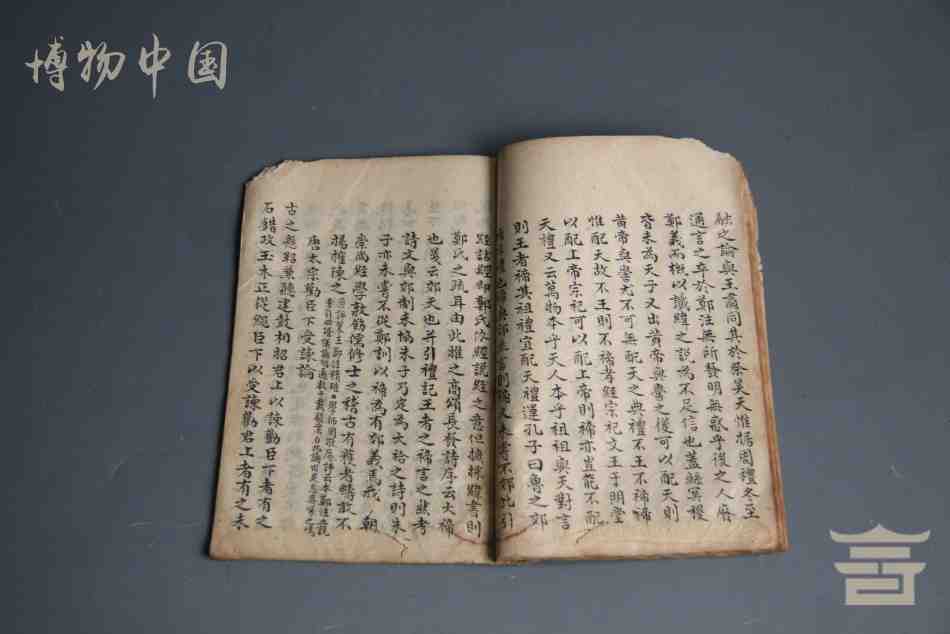 博物中国
融之論與王肅同其於祭昊天惟据周禮冬至
通言之卒於鄭注無所發明無惑乎後之人靡
鄭義而概以讖緯之說為不足信也蓋鯀冥稷
皆未為天子又出黃帝與嚳之後可以配天則
黃帝與嚳尤不可無配天之典禮不王不禘
惟配天故不王則不禘孝經宗祀文王于明堂
以配上帝宗祀可以配上帝則禘亦豈能不配
天禮又云萬物本乎天人本乎祖祖與天對言
則王者禘其祖禮宜配天禮運孔子曰魯之郊
經詁經即鄭氏依經說經之意但摭採緯書則
鄭氏之疏耳由此推之商頌長發詩序云大禘
也箋云郊天也并引禮記王者之禘言之然考
詩文與郊制未協朱子乃定為大祫之詩則朱
子亦未嘗不從鄭訓以禘為有郊義焉我 朝
崇尚經學敦篤儒修士之稽古有獲者疇敢不
揚搉陳之
唐太宗勸臣下受諫論
古之懸鞀兼聽建鼓相招君上以諫勸臣下者有之
石錯攻玉木正從繩臣下以受諫勸君上者有之未